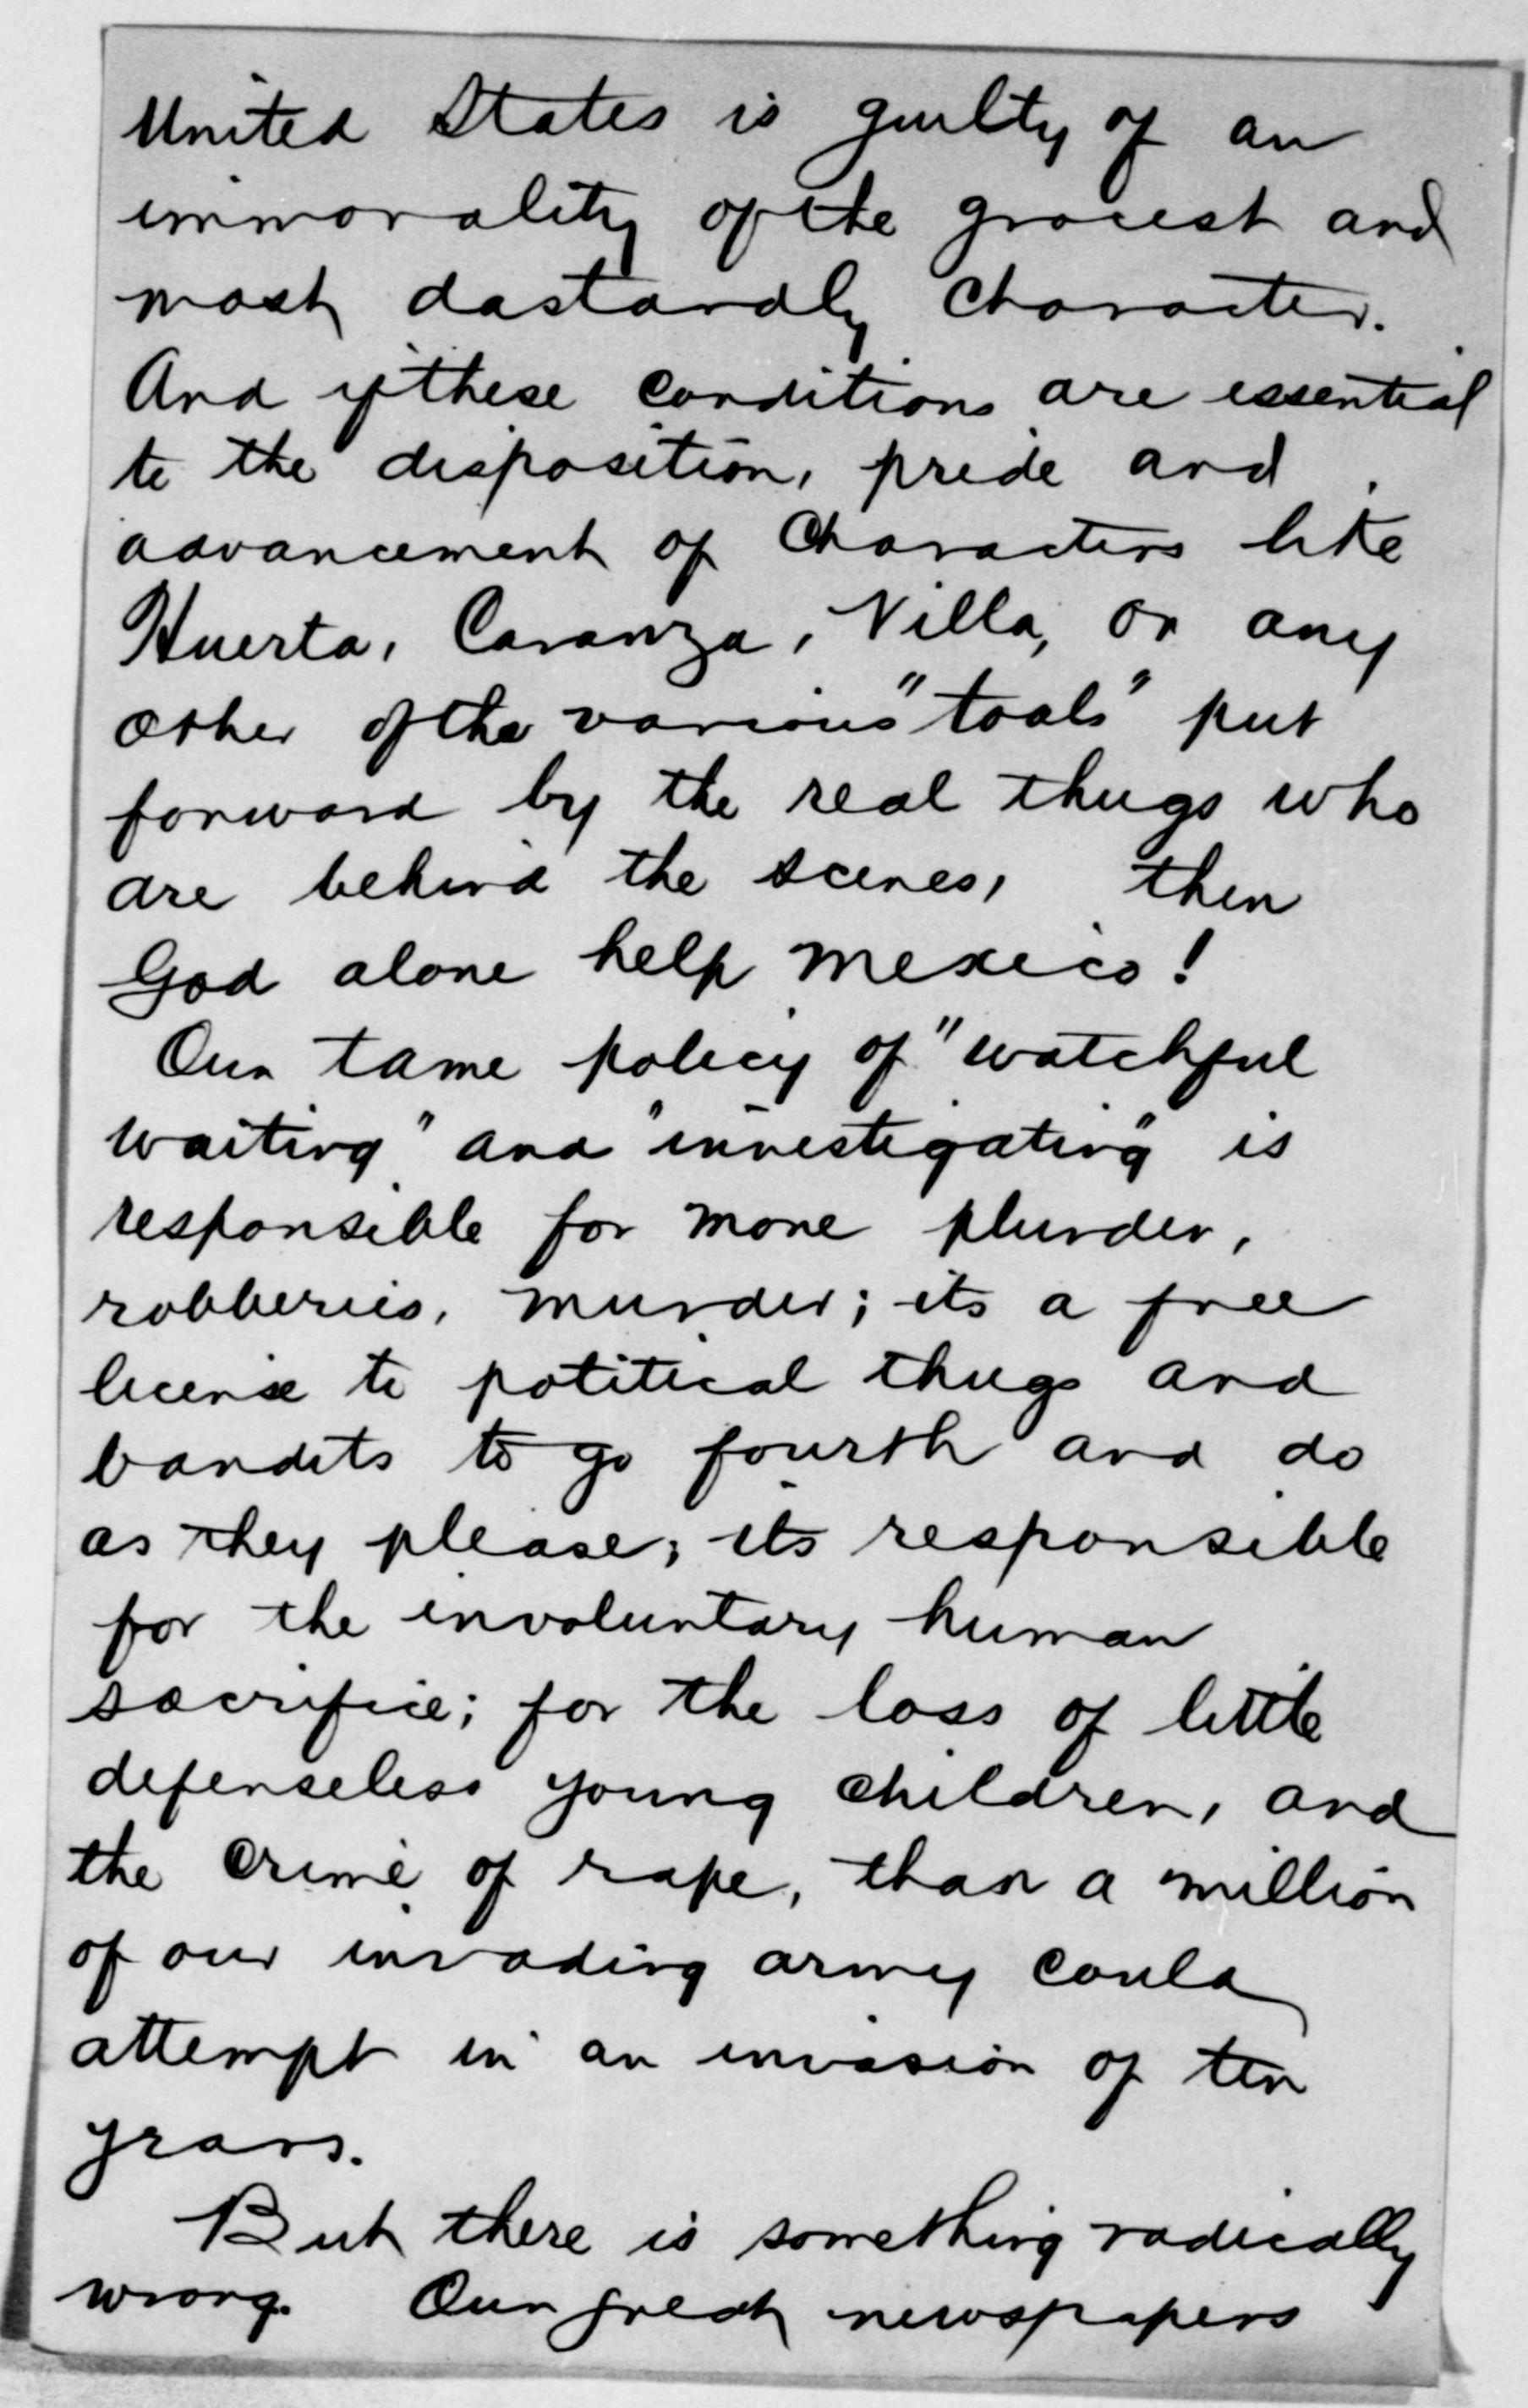 United States is guilty of an
immorality of the grocest and
most dastardly character.
And if these conditions are essential
to the disposition, pride and
advancement of characters like
Huerta, Caranza, Villa, or any
other of the various "tools" put
forward by the real thugs who
are behind the scenes, then
God alone help Mexico!
Our tame policy of "watchful
waiting" and "investigating" is
responsible for more plunder,
robberies, murder; its a free
license to potitical thugs and
bandits to go fourth and do
as they please; its responsible
for the involuntary human
sacrifice; for the loss of little
defenseless young children, and
the crime of rape, than a million
of our invading army could
attempt in an invasion of ten
years.
But there is something radically
wrong. Our great newspapers